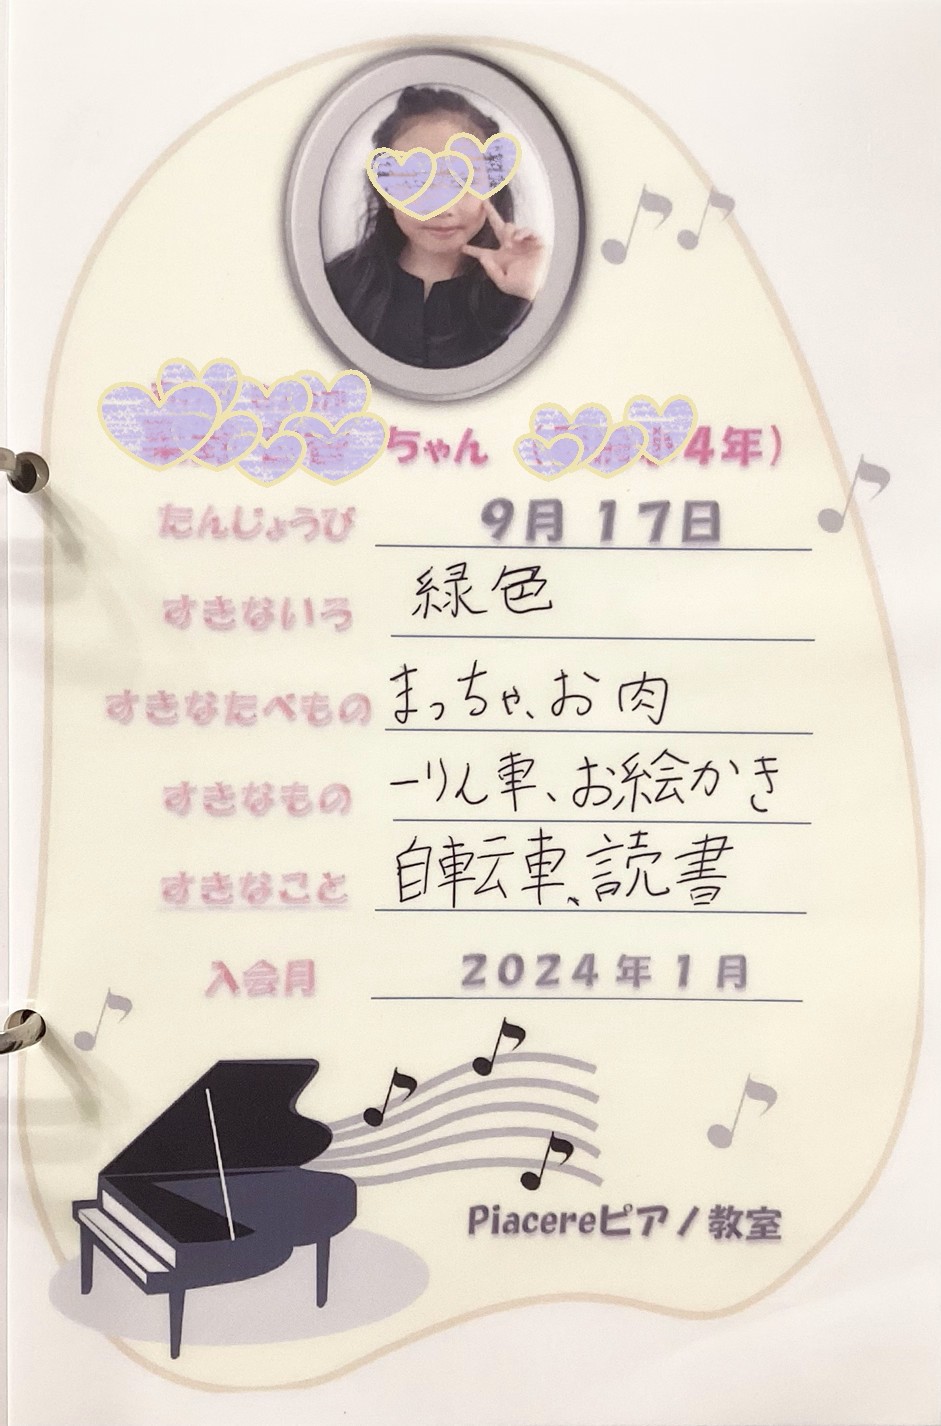 ちゃん 4年)
たんじょうび 9月17日
すきないろ 緑色
すきなたべもの まっちゃ、お肉
すきなもの 一りん車、お絵かき
すきなこと 自転車、読書
入会月 2024年1月
Piacereピアノ教室